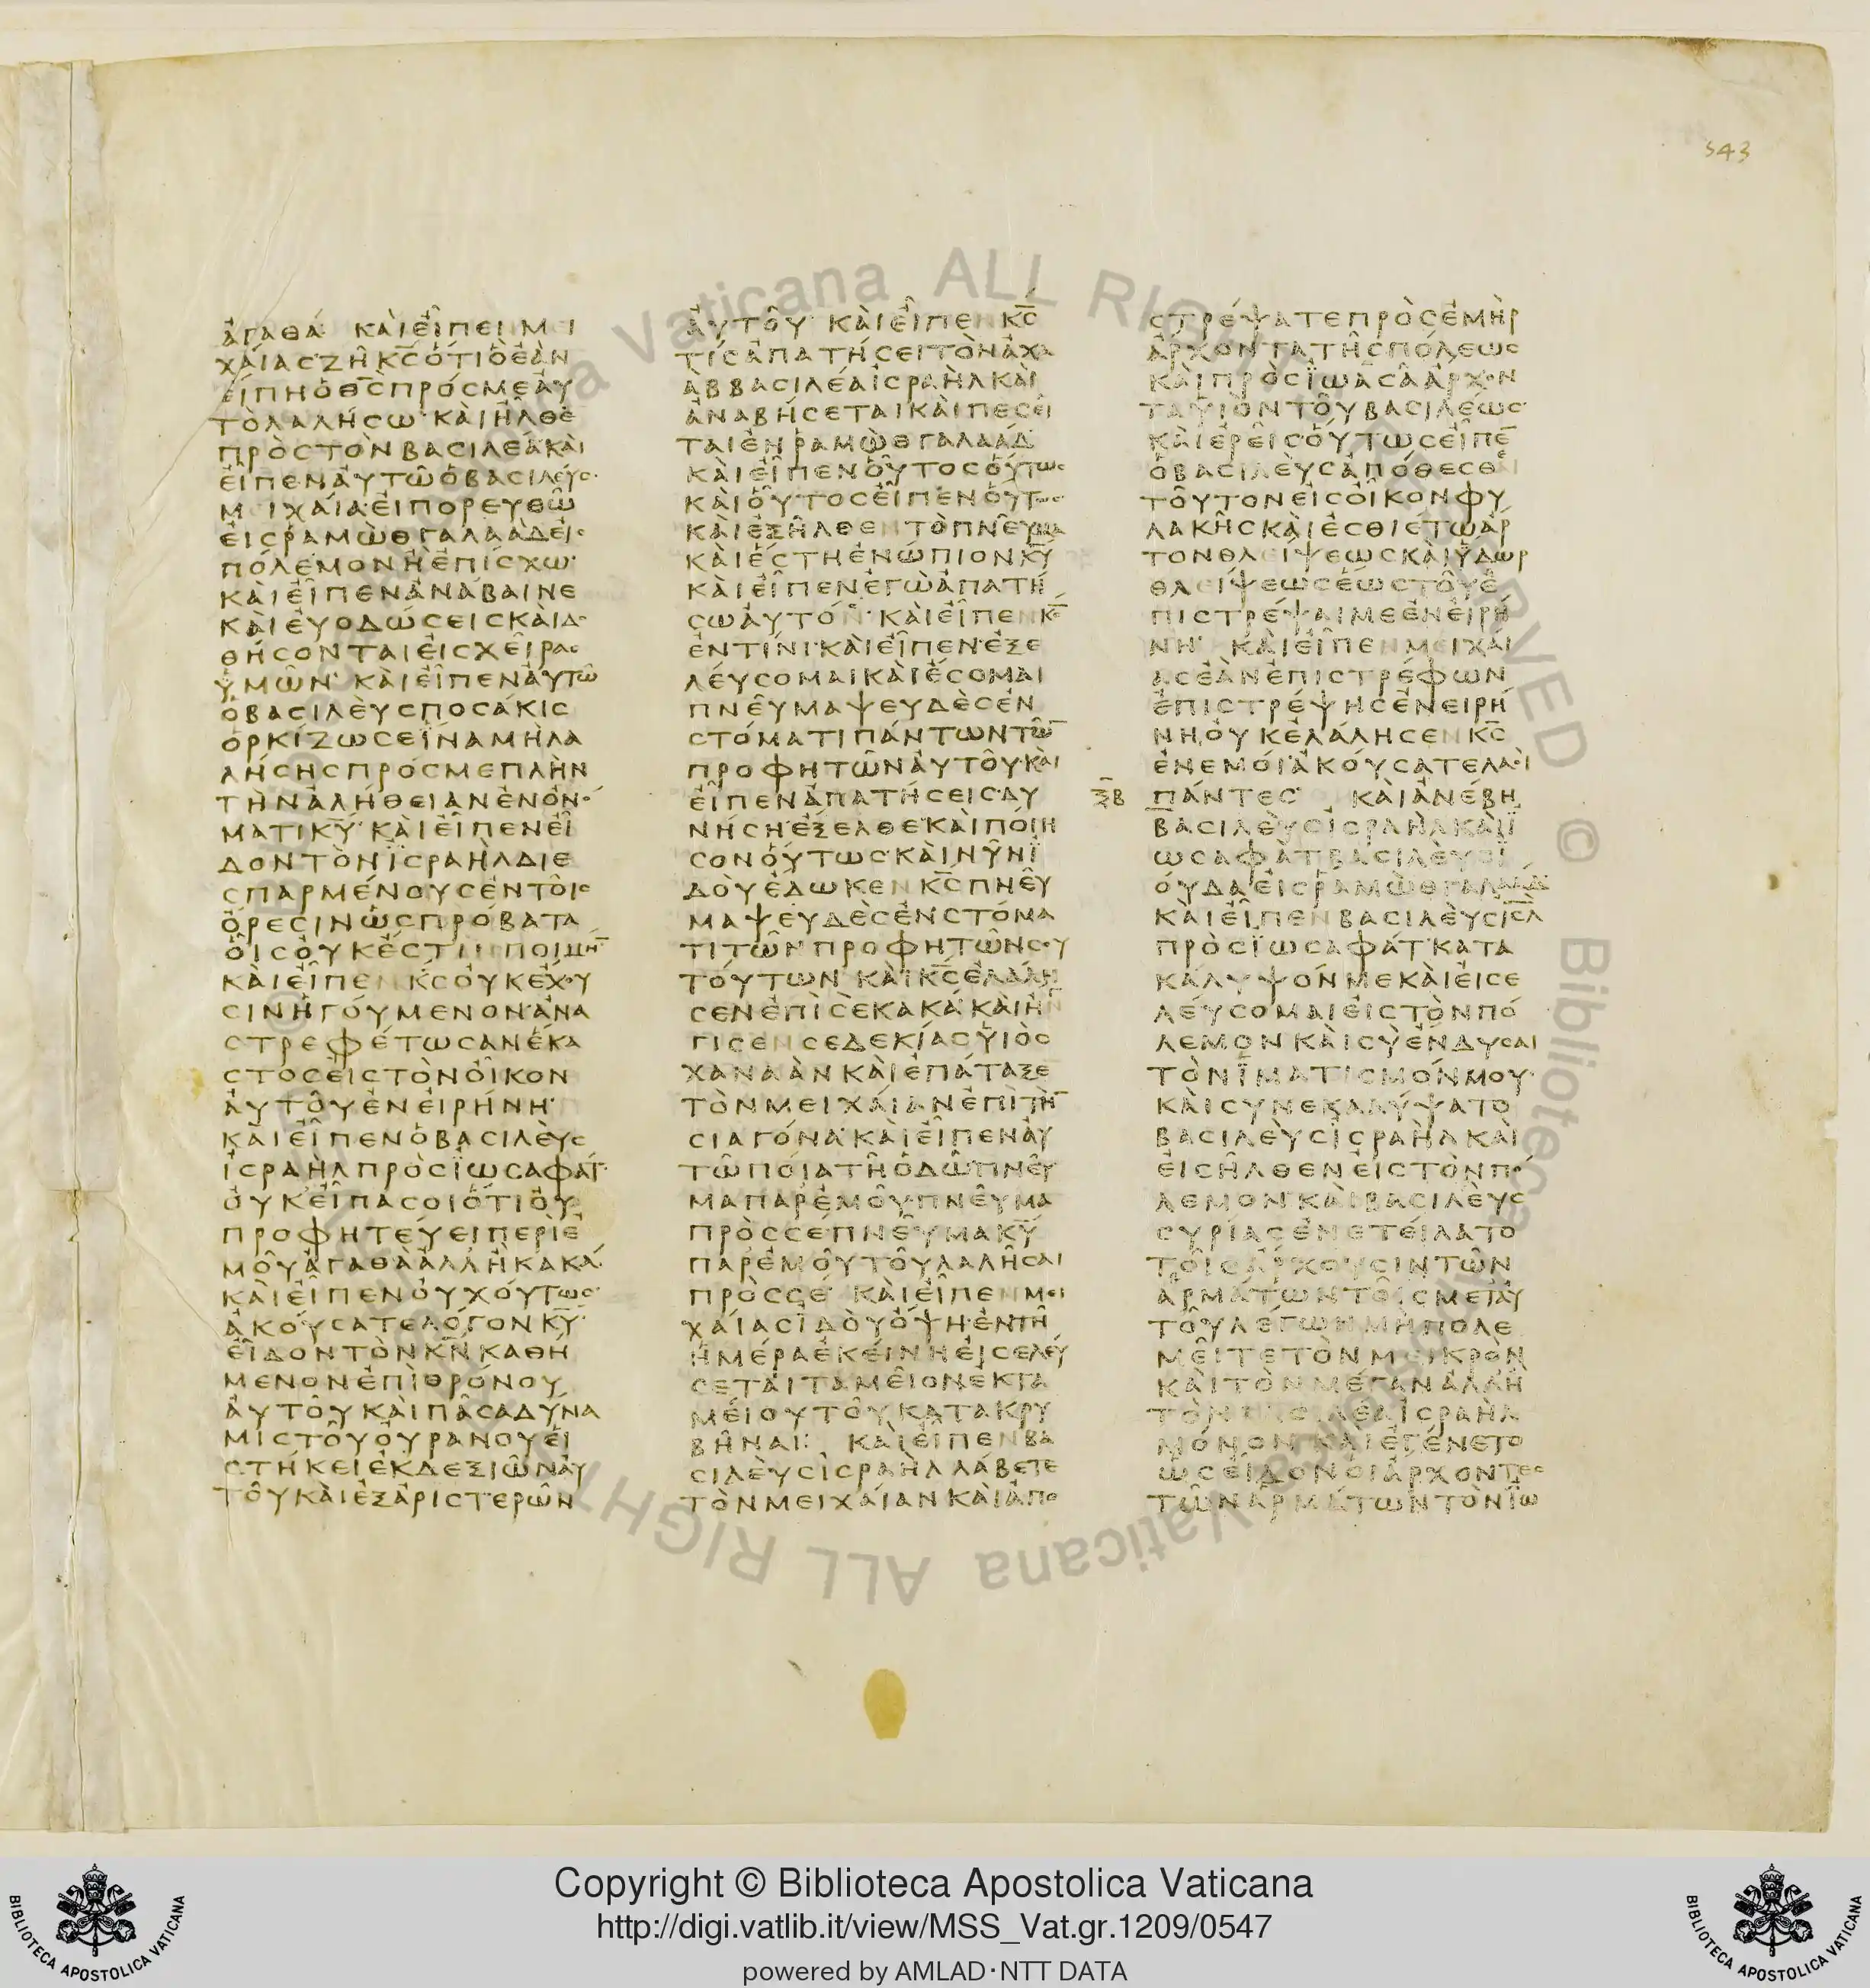 543
ἀγαθά· καὶ εἶπεν Μει
χαίας ζῇ κ̅ς̅ ὅτι ὃ ἐὰν
εἴπῃ ὁ θ̅ς̅ πρός με αὐ
τὸ λαλήσω· καὶ ἦλθε
πρὸς τὸν βασιλέα· καὶ
εἶπεν αὐτῷ ὁ βασιλεύς·
Μειχαία· εἰ πορευθῶ
εἰς Ῥαμὼθ Γαλαὰδ εἰς
πόλεμον ἢ ἐπίσχω·
καὶ εἶπεν ἀνάβαινε
καὶ εὐοδώσεις καὶ δο
θήσονται εἰς χεῖρας
ὑμῶν· καὶ εἶπεν αὐτῷ
ὁ βασιλεὺς ποσάκις
ὁρκίζω σε ἵνα μὴ λα
λήσῃς πρός με πλὴν
τὴν ἀλήθειαν ἐν ὀνό
ματι κ̅υ̅· καὶ εἶπεν εἶ
δον τὸν Ἰσραὴλ διε
σπαρμένους ἐν τοῖς
ὄρεσιν ὡς πρόβατα
οἷς οὐκ ἔστιν ποιμή̅
καὶ εἶπεν κ̅ς̅ οὐκ ἔχου
σιν ἡγούμενον· ἀνα
στρεφέτωσαν ἕκα
στος εἰς τὸν οἶκον
αὐτοῦ ἐν εἰρήνῃ·
καὶ εἶπεν ὁ βασιλεὺς
Ἰσραὴλ πρὸς Ἰωσαφάτ·
οὐκ εἶπά σοι ὅτι οὐ
προφητεύει περὶ ἐ
μοῦ ἀγαθὰ ἀλλ ἢ κακά·
καὶ εἶπεν οὐχ οὕτως·
ἀκούσατε λόγον κ̅υ̅·
εἶδον τὸν κ̅ν̅ καθή
μενον ἐπὶ θρόνου
αὐτοῦ καὶ πᾶσα δύνα
μις τοῦ οὐρανοῦ εἱ
στήκει ἐκ δεξιῶν αὐ
τοῦ καὶ ἐξ ἀριστερῶν
αὐτοῦ· καὶ εἶπεν κ̅ς̅
τίς ἀπατήσει τὸν Ἀχα
ὰβ βασιλέα Ἰσραὴλ καὶ
ἀναβήσεται καὶ πεσεῖ
ται ἐν Ῥαμὼθ Γαλαάδ·
καὶ εἶπεν οὗτος οὕτως
καὶ οὗτος εἶπεν οὕτως·
καὶ ἐξῆλθεν τὸ πνεῦμα
καὶ ἔστη ἐνώπιον κ̅υ̅
καὶ εἶπεν ἐγὼ ἀπατή
σω αὐτόν· καὶ εἶπεν κ̅ς̅
ἐν τίνι· καὶ εἶπεν· ἐξε
λεύσομαι καὶ ἔσομαι
πνεῦμα ψευδὲς ἐν
στόματι πάντων τῶ̅
προφητῶν αὐτοῦ· καὶ
εἶπεν ἀπατήσεις· δυ
νήσῃ· ἔξελθε καὶ ποίη
σον οὕτως· καὶ νῦν ἰ
δοὺ ἔδωκεν κ̅ς̅ πνεῦ
μα ψευδὲς ἐν στόμα
τι τῶν προφητῶν σου
τούτων· καὶ κ̅ς̅ ἐλάλη
σεν ἐπὶ σὲ κακά· καὶ ἤγ
γισεν Σεδεκίας υἱὸς
Χαναὰν καὶ ἐπάταξε
τὸν Μειχαίαν ἐπὶ τὴ̅
σιαγόνα· καὶ εἶπεν αὐ
τῷ ποίᾳ τῇ ὁδῷ πνεῦ
μα παρ ἐμοῦ· πνεῦμα
πρὸς σέ· πνεῦμα κ̅υ̅
παρ ἐμοῦ τοῦ λαλῆσαι
πρὸς σέ· καὶ εἶπεν Μει
χαίας ἰδοὺ ὄψῃ ἐν τῇ
ἡμέρᾳ ἐκείνῃ εἰσελεύ
σεται ταμεῖον ἐκ τα
μείου τοῦ κατακρυ
βῆναι: καὶ εἶπεν βα
σιλεὺς Ἰσραὴλ λάβετε
τὸν Μειχαίαν καὶ ἀπο
στρέψατε πρὸς Ἐμὴρ
ἄρχοντα τῆς πόλεως
καὶ πρὸς Ἰωὰς ἄρχον
τα υἱὸν τοῦ βασιλέως·
καὶ ἐρεῖς· οὕτως εἶπε̅
ὁ βασιλεὺς ἀπόθεσθαι
τοῦτον εἰς οἶκον φυ
λακῆς καὶ ἐσθιέτω ἄρ
τον θλείψεως καὶ ὕδωρ
θλείψεως ἕως τοῦ ἐ
πιστρέψαι με ἐν εἰρή
νῃ· καὶ εἶπεν Μειχαί
ας ἐὰν ἐπιστρέφων
ἐπιστρέψῃς ἐν εἰρή
νῃ οὐκ ἐλάλησεν κ̅ς̅
ἐν ἐμοί· ἀκούσατε λαοὶ
ξ̅β πάντες· καὶ ἀνέβη
βασιλεὺς Ἰσραὴλ καὶ Ἰ
ωσαφὰτ βασιλεὺς Ἰ
ούδα εἰς Ῥαμὼθ Γαλαάδ·
καὶ εἶπεν βασιλεὺς Ἰσ̅λ̅
πρὸς Ἰωσαφάτ· κατα
κάλυψόν με καὶ εἰσε
λεύσομαι εἰς τὸν πό
λεμον καὶ σὺ ἔνδυσαι
τὸν ἱματισμόν μου·
καὶ συνεκαλύψατο
βασιλεὺς Ἰσραὴλ καὶ
εἰσῆλθεν εἰς τὸν πό
λεμον· καὶ βασιλεὺς
Συρίας ἐνετείλατο
τοῖς ἄρχουσιν τῶν
ἁρμάτων τοῖς μετ αὐ
τοῦ λέγων μὴ πολε
μεῖτε τὸν μεικρὸν
καὶ τὸν μέγαν ἀλλ ἢ
τὸν βασιλέα Ἰσραὴλ
μόνον· καὶ ἐγένετο
ὡς εἶδον οἱ ἄρχοντες
τῶν ἁρμάτων τὸν Ἰω
Copyright © Biblioteca Apostolica Vaticana
http://digi.vatlib.it/view/MSS_Vat.gr.1209/0547
powered by AMLAD·NTT DATA